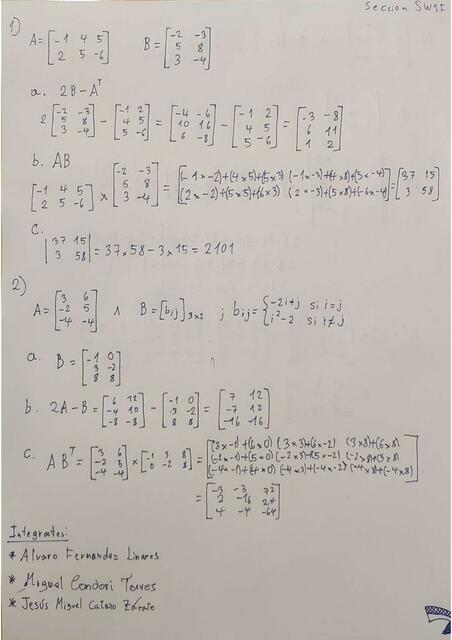 Seccion SW1F
1)
A = [-1 4 5; 2 5 -6] B = [-2 -3; 5 8; 3 -4]
a. 2B - Aᵀ
2 [-2 -3; 5 8; 3 -4] - [-1 2; 4 5; 5 -6] = [-4 -6; 10 16; 6 -8] - [-1 2; 4 5; 5 -6] = [-3 -8; 6 11; 1 2]
b. AB
[-1 4 5; 2 5 -6] × [-2 -3; 5 8; 3 -4] = [(-1×-2)+(4×5)+(5×3) (-1×-3)+(4×8)+(5×-4); (2×-2)+(5×5)+(6×3) (2×-3)+(5×8)+(-6×-4)] = [37 15; 3 58]
c.
|37 15; 3 58| = 37×58 - 3×15 = 2101
2)
A = [3 6; -2 5; -4 -4] ∧ B = [bij]3×2 ; bij = {-2i+j si i=j; i²-2 si i≠j
a. B = [-1 0; 3 -2; 8 8]
b. 2A - B = [6 12; -4 10; -8 -8] - [-1 0; 3 -2; 8 8] = [7 12; -7 12; -16 -16]
c. ABᵀ = [3 6; -2 5; -4 -4] × [-1 3 8; 0 -2 8] = [(3×-1)+(6×0) (3×3)+(6×-2) (3×8)+(6×8); (-2×-1)+(5×0) (-2×3)+(5×-2) (-2×8)+(5×8); (-4×-1)+(4×0) (-4×3)+(-4×-2) (-4×8)+(-4×8)]
= [-3 -3 72; 2 -16 24; 4 -4 -64]
Integrantes:
* Alvaro Fernandez Linares
* Miguel Condori Torres
* Jesús Miguel